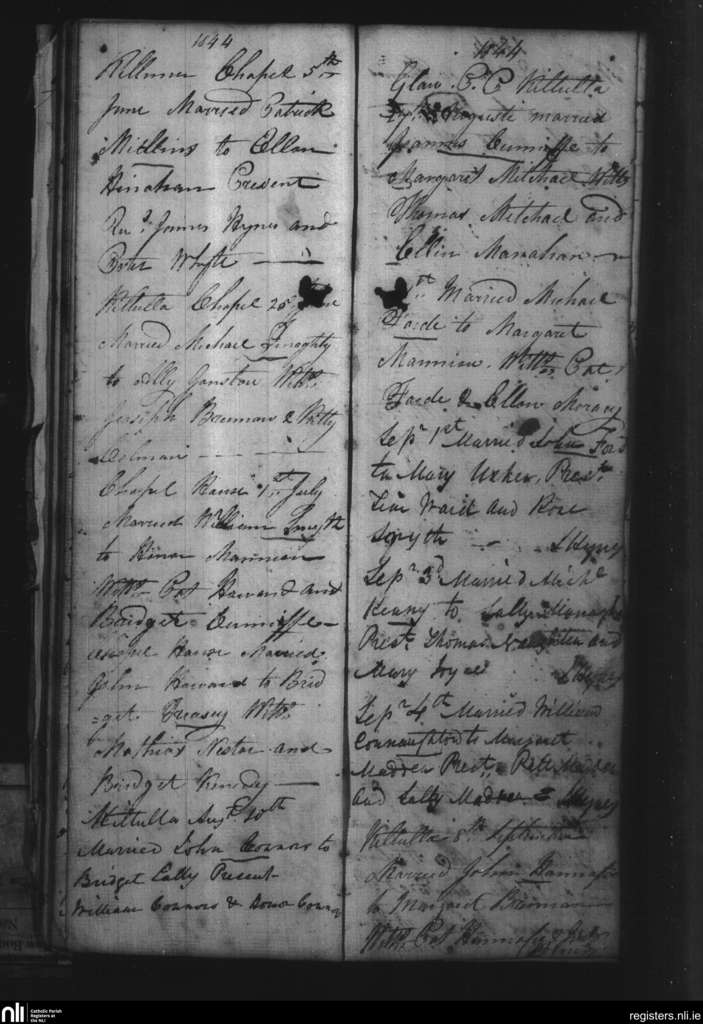 1844
Chapel 5th
June Married Patrick
Mullins to Ellen
Hinahan Present
Revd. James Hynes and
Peter Whyte
Kiltulla Chapel 20th June
Married Michael
to Ganston Witts.
Joseph Brennan & Kitty
Colman
Chapel House 1st July
Married William Smyth
to Honor Mannion
Witts. Pat Howard and
Bridget Cunniffe
Chapel House Married
John Howard to Brid
=get Treasey Witts.
Mathias Nestor and
Bridget Kennedy
Kiltulla Augt. 10th
Married John Connors to
Bridget Lally Present
William Connors & Connors
1844
C.C. Kiltulla
Augusti married
Joannes Cunniffe to
Margaret Mitchael Witts
Thomas Mitchael and
Ellin Manahan
Married Michael
Forde to Margaret
Mannion. Witts. Pat
Forde & Ellen Moran
Sepr. 1st Married John
to Mary Usher, Prest.
Tim Ward and Rose
Smyth J Hynes
Sepr. 3d Married Michl.
Kenny to Sally Monaghan
Prest. Thomas Naughten and
Mary Joyce J Hynes
Sepr. 4th Married William
Connaughton to Margaret
Madden Prest. Madden
and Sally Madden J Hynes
Kiltulla 8th September
Married John Hannafin
to Margaret
Witts. Pat Hannafin &
nli
Catholic Parish
Registers at
the NLI
registers.nli.ie